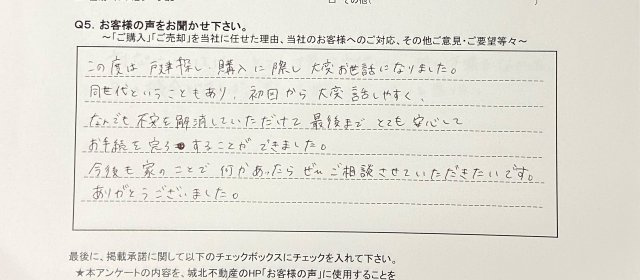 Q5. お客様の声をお聞かせ下さい。
～「ご購入」「ご売却」を当社に任せた理由、当社のお客様へのご対応、その他ご意見・ご要望等々～
この度は 戸建探し、購入に際し 大変お世話になりました。
同世代ということもあり、初回から 大変 話しやすく、
なんでも 不安を解消していただけて 最後まで とても 安心して
お手続を完了することができました。
今後も 家のことで 何かあったら ぜひ ご相談させていただきたいです。
ありがとうございました。
最後に、掲載承諾に関して以下のチェックボックスにチェックを入れて下さい。
★本アンケートの内容を、城北不動産のHP「お客様の声」に使用することを